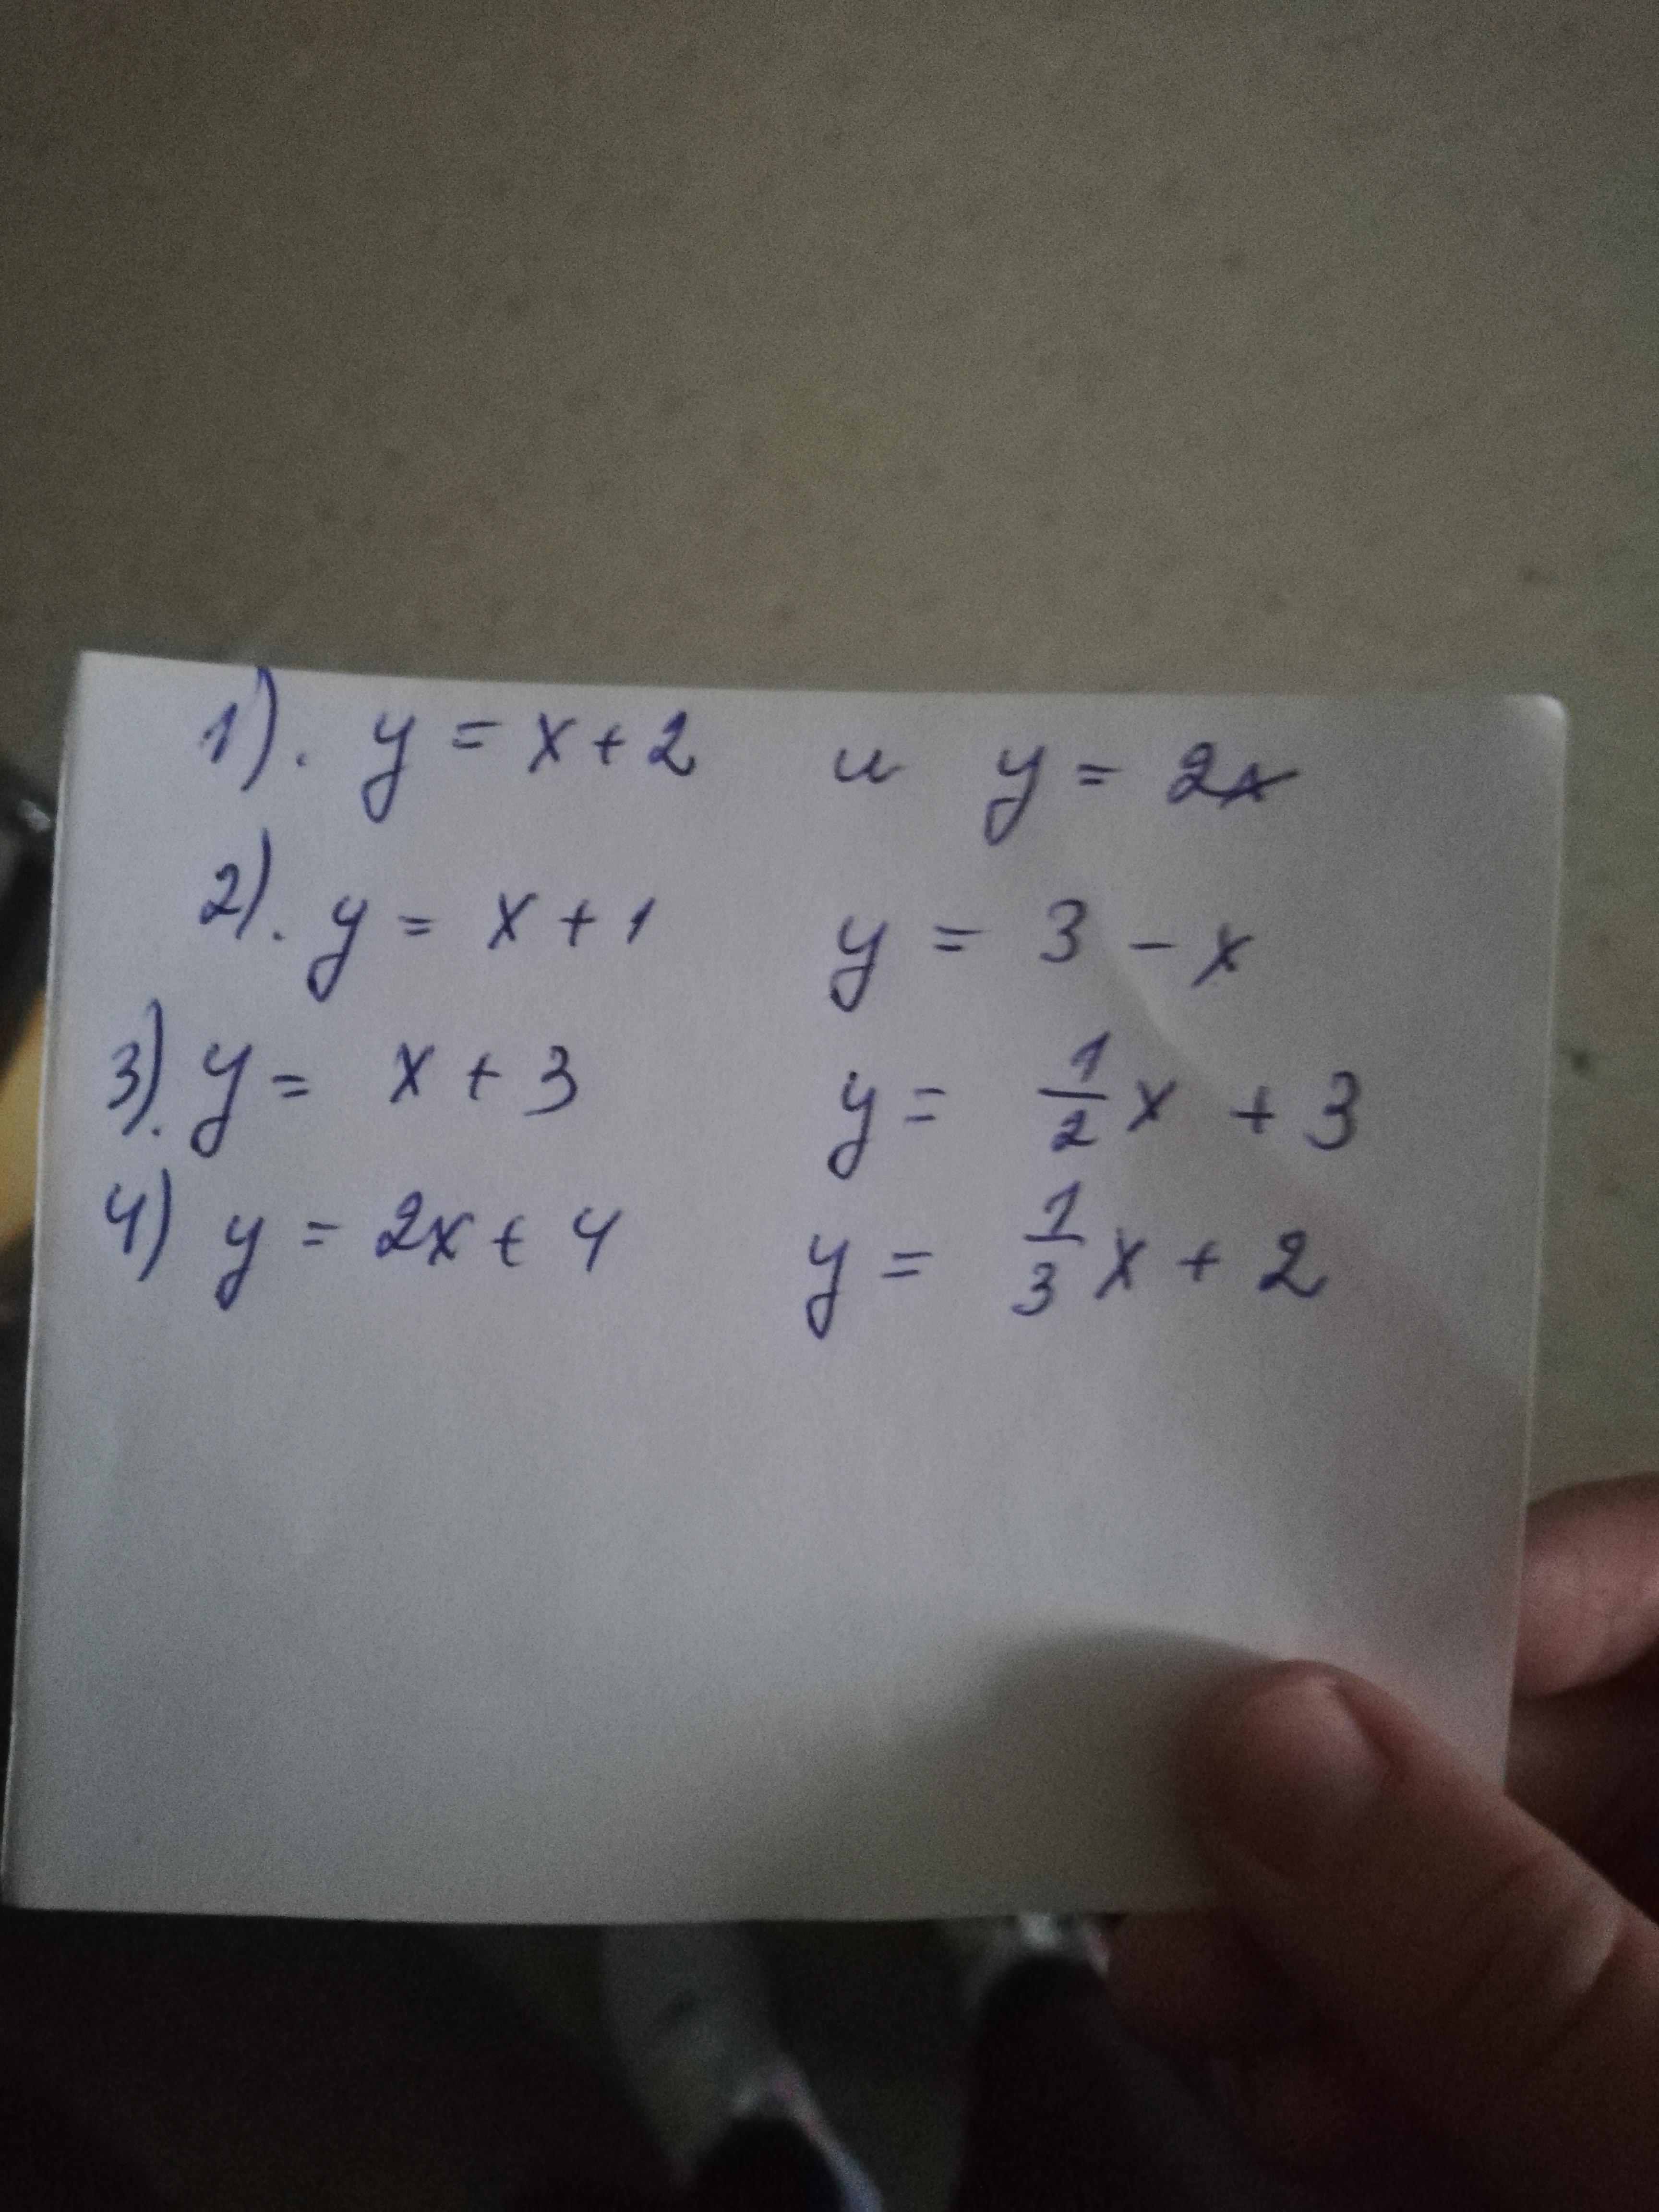 1). y = x + 2 и y = 2x
2). y = x + 1 y = 3 - x
3). y = x + 3 y = 1/2 x + 3
4) y = 2x + 4 y = 1/3 x + 2